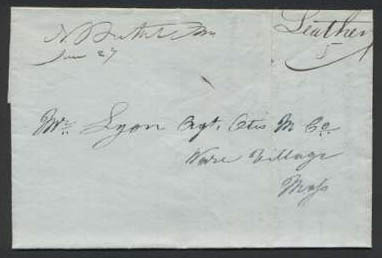 Leather
5
Jun 27
Mr. Lyon Agt. Otis M Co.
Ware Village
Mass